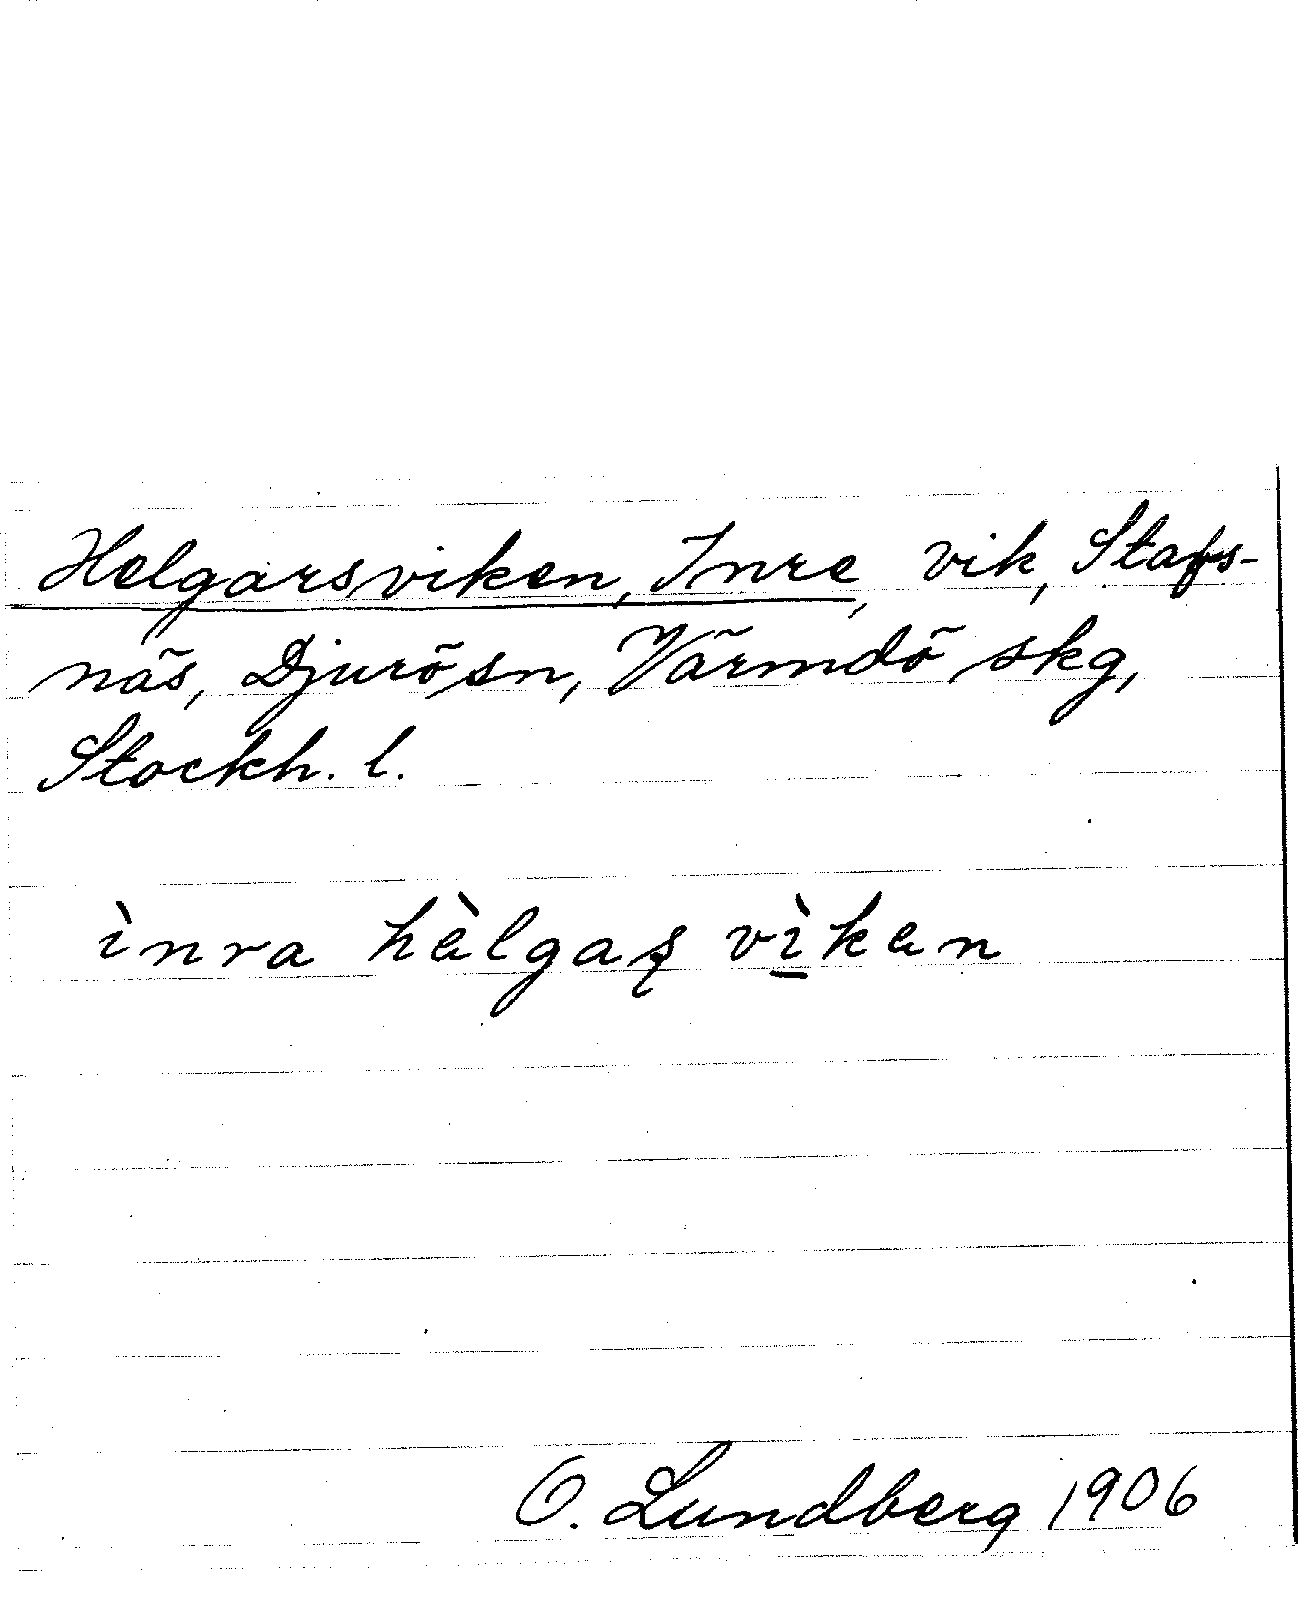 Helgarsviken, Inre, vik, Stafs-
näs, Djurö sn, Värmdö skg,
Stockh. l.
ìnra hèlgaʂ vì̱ken
O. Lundberg 1906